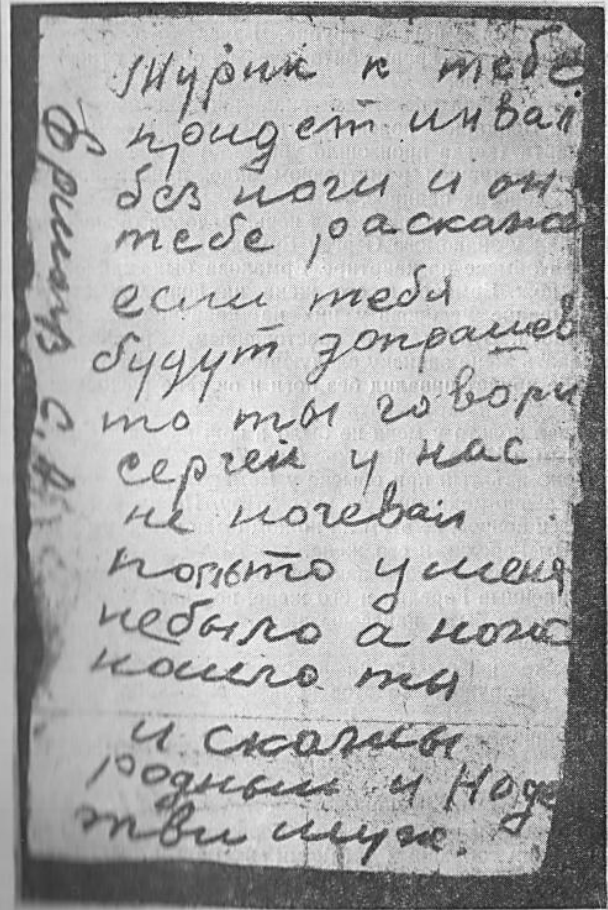 Шурик к тебе
придет инвал
без ноги и он
тебе раскаже
если тебя
будут допрашев
то ты говори
сергей у нас
не ночевал
польто у меня
небыло а ножа
нашло ты
и скажы
родным и Наде
твои муж.